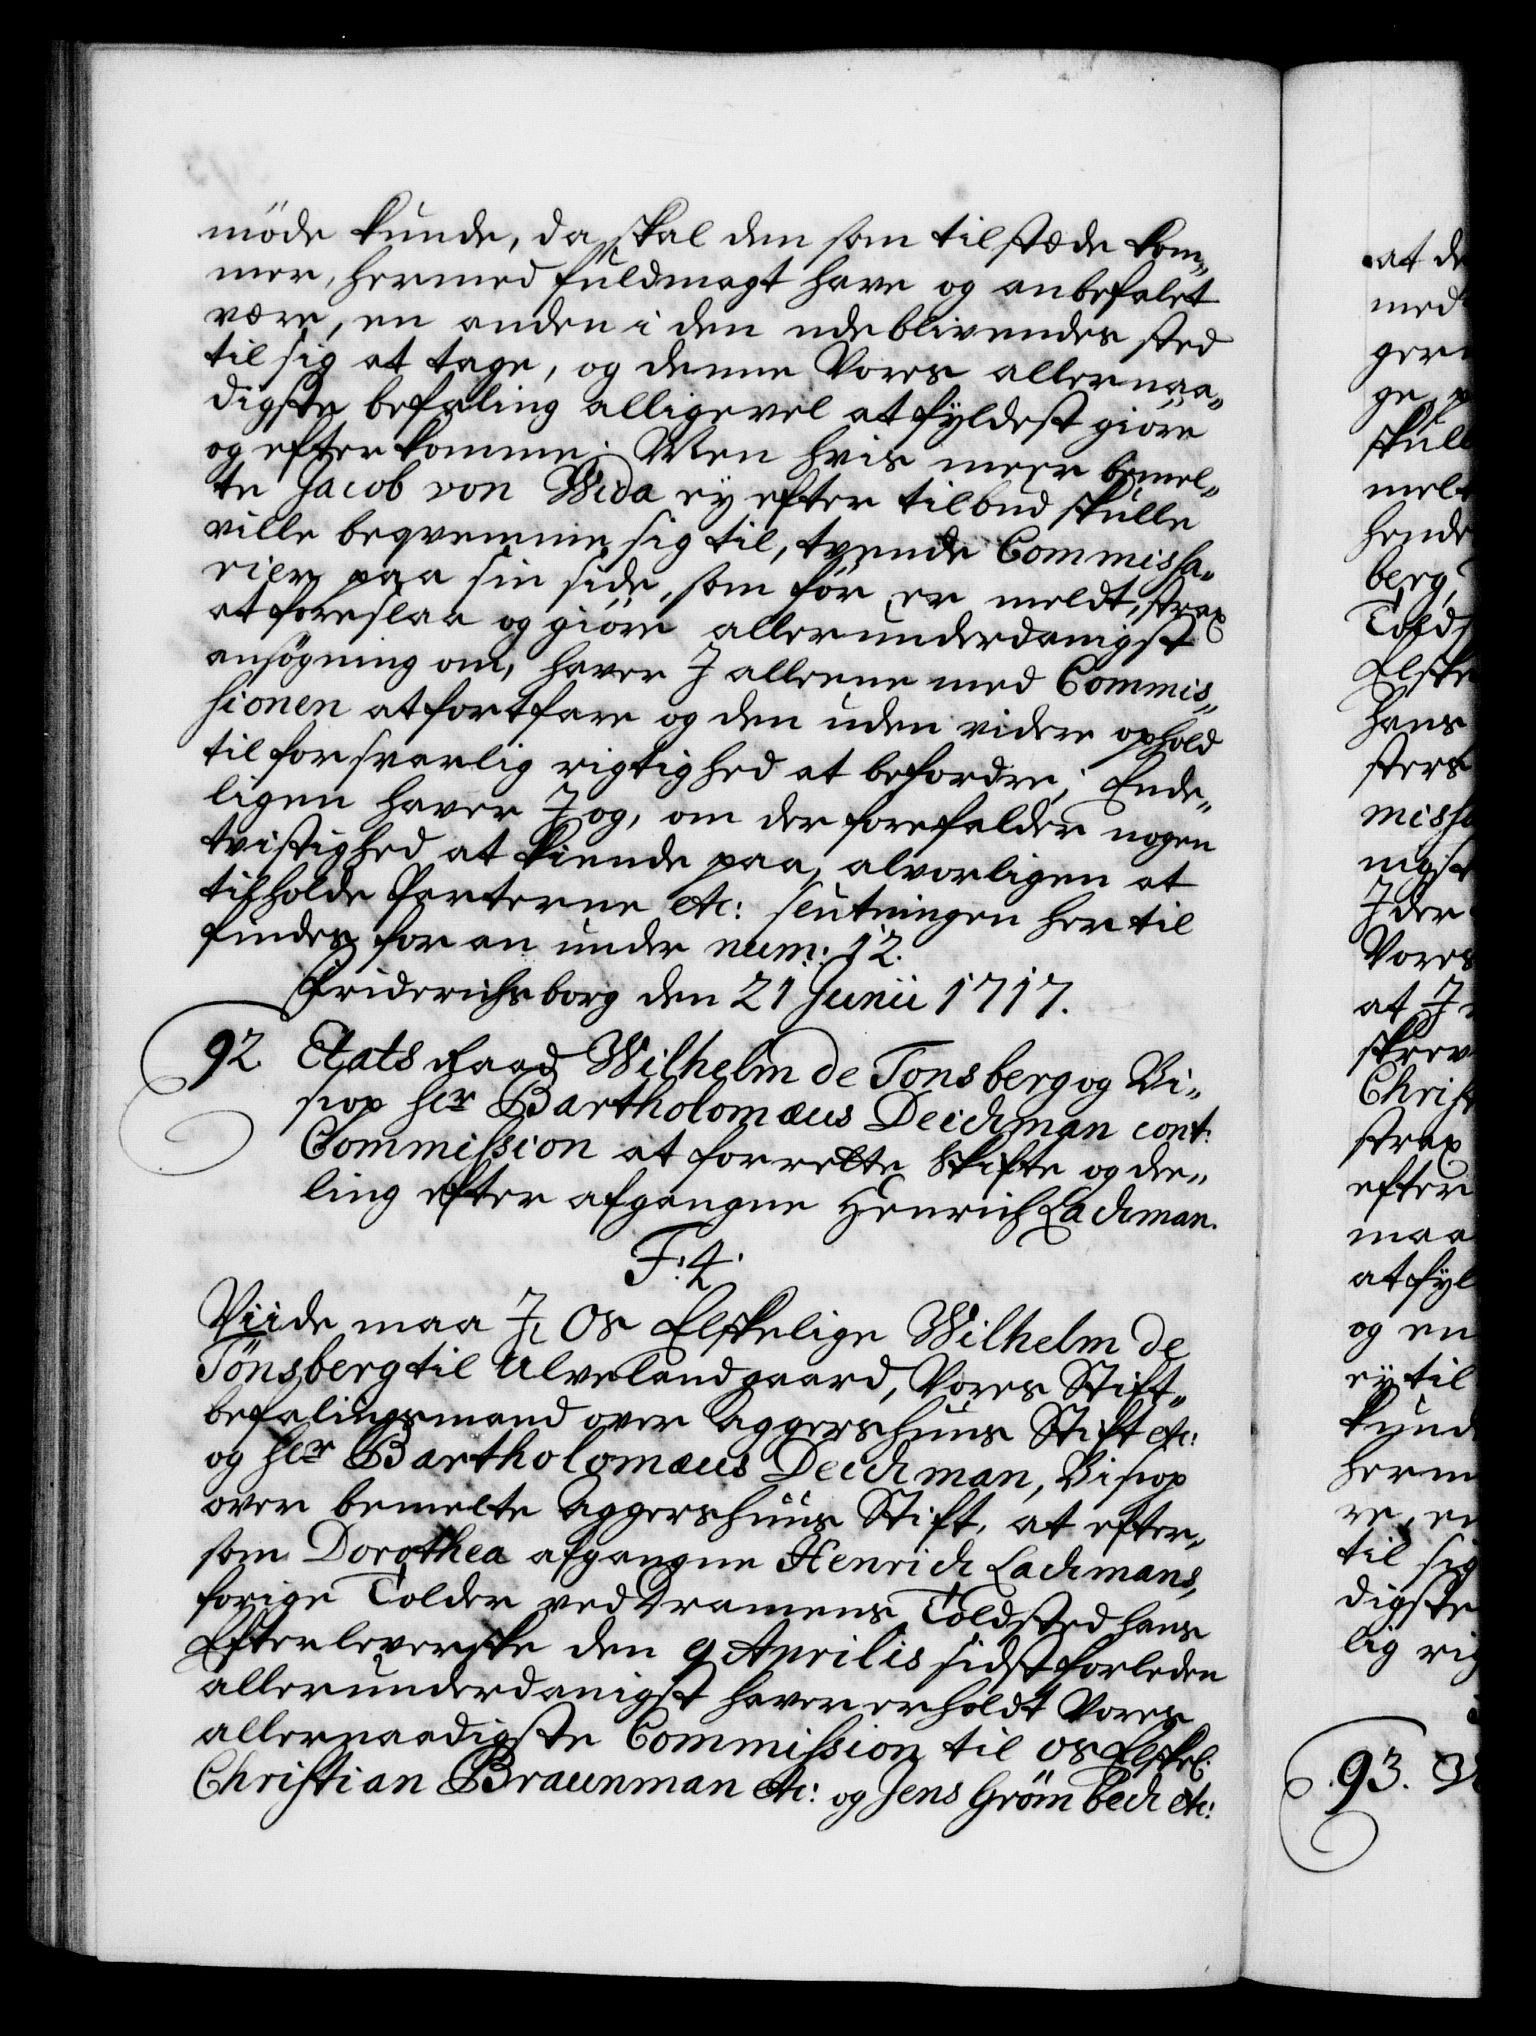 möde kunde, da skal den som tilstæde kom„
mer, hermed fuldmagt have og anbefalet
være, en anden i den udeblivendes sted
til sig at tage, og denne Vores allernaa„
digste befaling alligevel at fyldest giöre
og efterkomme. Men hvis meer bemel„
te Jacob von Wida ey efter tilbud skulle
ville beqvemme sig til, tvende Commissa„
rier paa sin side, som för er meldt, strax
at foreslaa og giöre allerunderdanigst
ansögning om, haver J alleene med Commis„
sionen at fortfare og den uden videre ophold
til forsvarlig rigtighed at befordre; Ende„
ligen haver J og, om der forefalder nogen
tvistighed at kiende paa, alvorligen at
tilholde Parterne etc: slutningen her til
findes foran under num: 12.
Friderichsborg den 21 Junii 1717.
92. Etats Raad Wilhelm de Tonsberg og Bi„
skop hr Bartholomæus Deichman cont:
Commission at forrette Skifte og dee„
ling efter afgangne Henrich Lachman.
F: 4.
Viide maa J, Os Elskelige Wilhelm de
Tönsberg til Ulvelandgaard, Vores Stift„
befalingsmand over Aggershuus Stift etc:
og hr Bartholomæus Deichman, Biskop
over bemelte Aggershuus Stift, at efter„
som Dorothea afgangne Henrich Lachmans,
forige Tolder ved Dramens Toldsted hans
Efterleverske den 9 Aprilis sidst forleden
allerunderdanigst haver erholdt Vores
allernaadigste Commission til os Elskel:
Christian Braunman etc: og Jens Grömbech etc:
at de
med
ge
skull
mel
hende
berg,
Told
Elske
hans
sters
missa
nigst
J der
Vores
at J
skrev
Christ
strax
efter
maa
at fyl
og en
ey til
kund
herm
re, en
til sig
digste
lig rig
93.